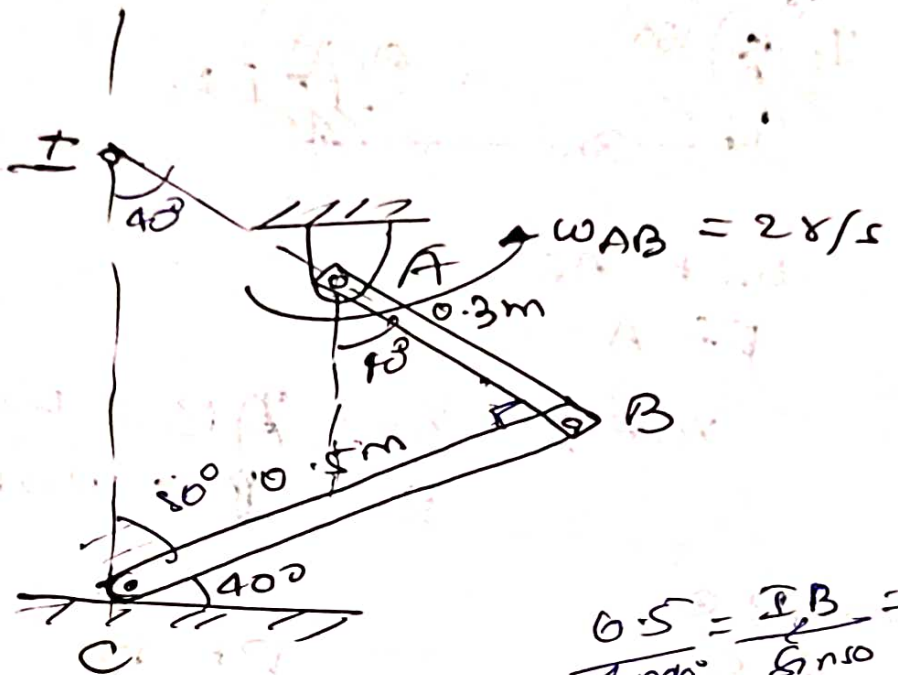 I
40°
ωAB = 2r/s
A
0.3m
40°
B
50° 0.5m
40°
C
0.5 = IB =
Sin50